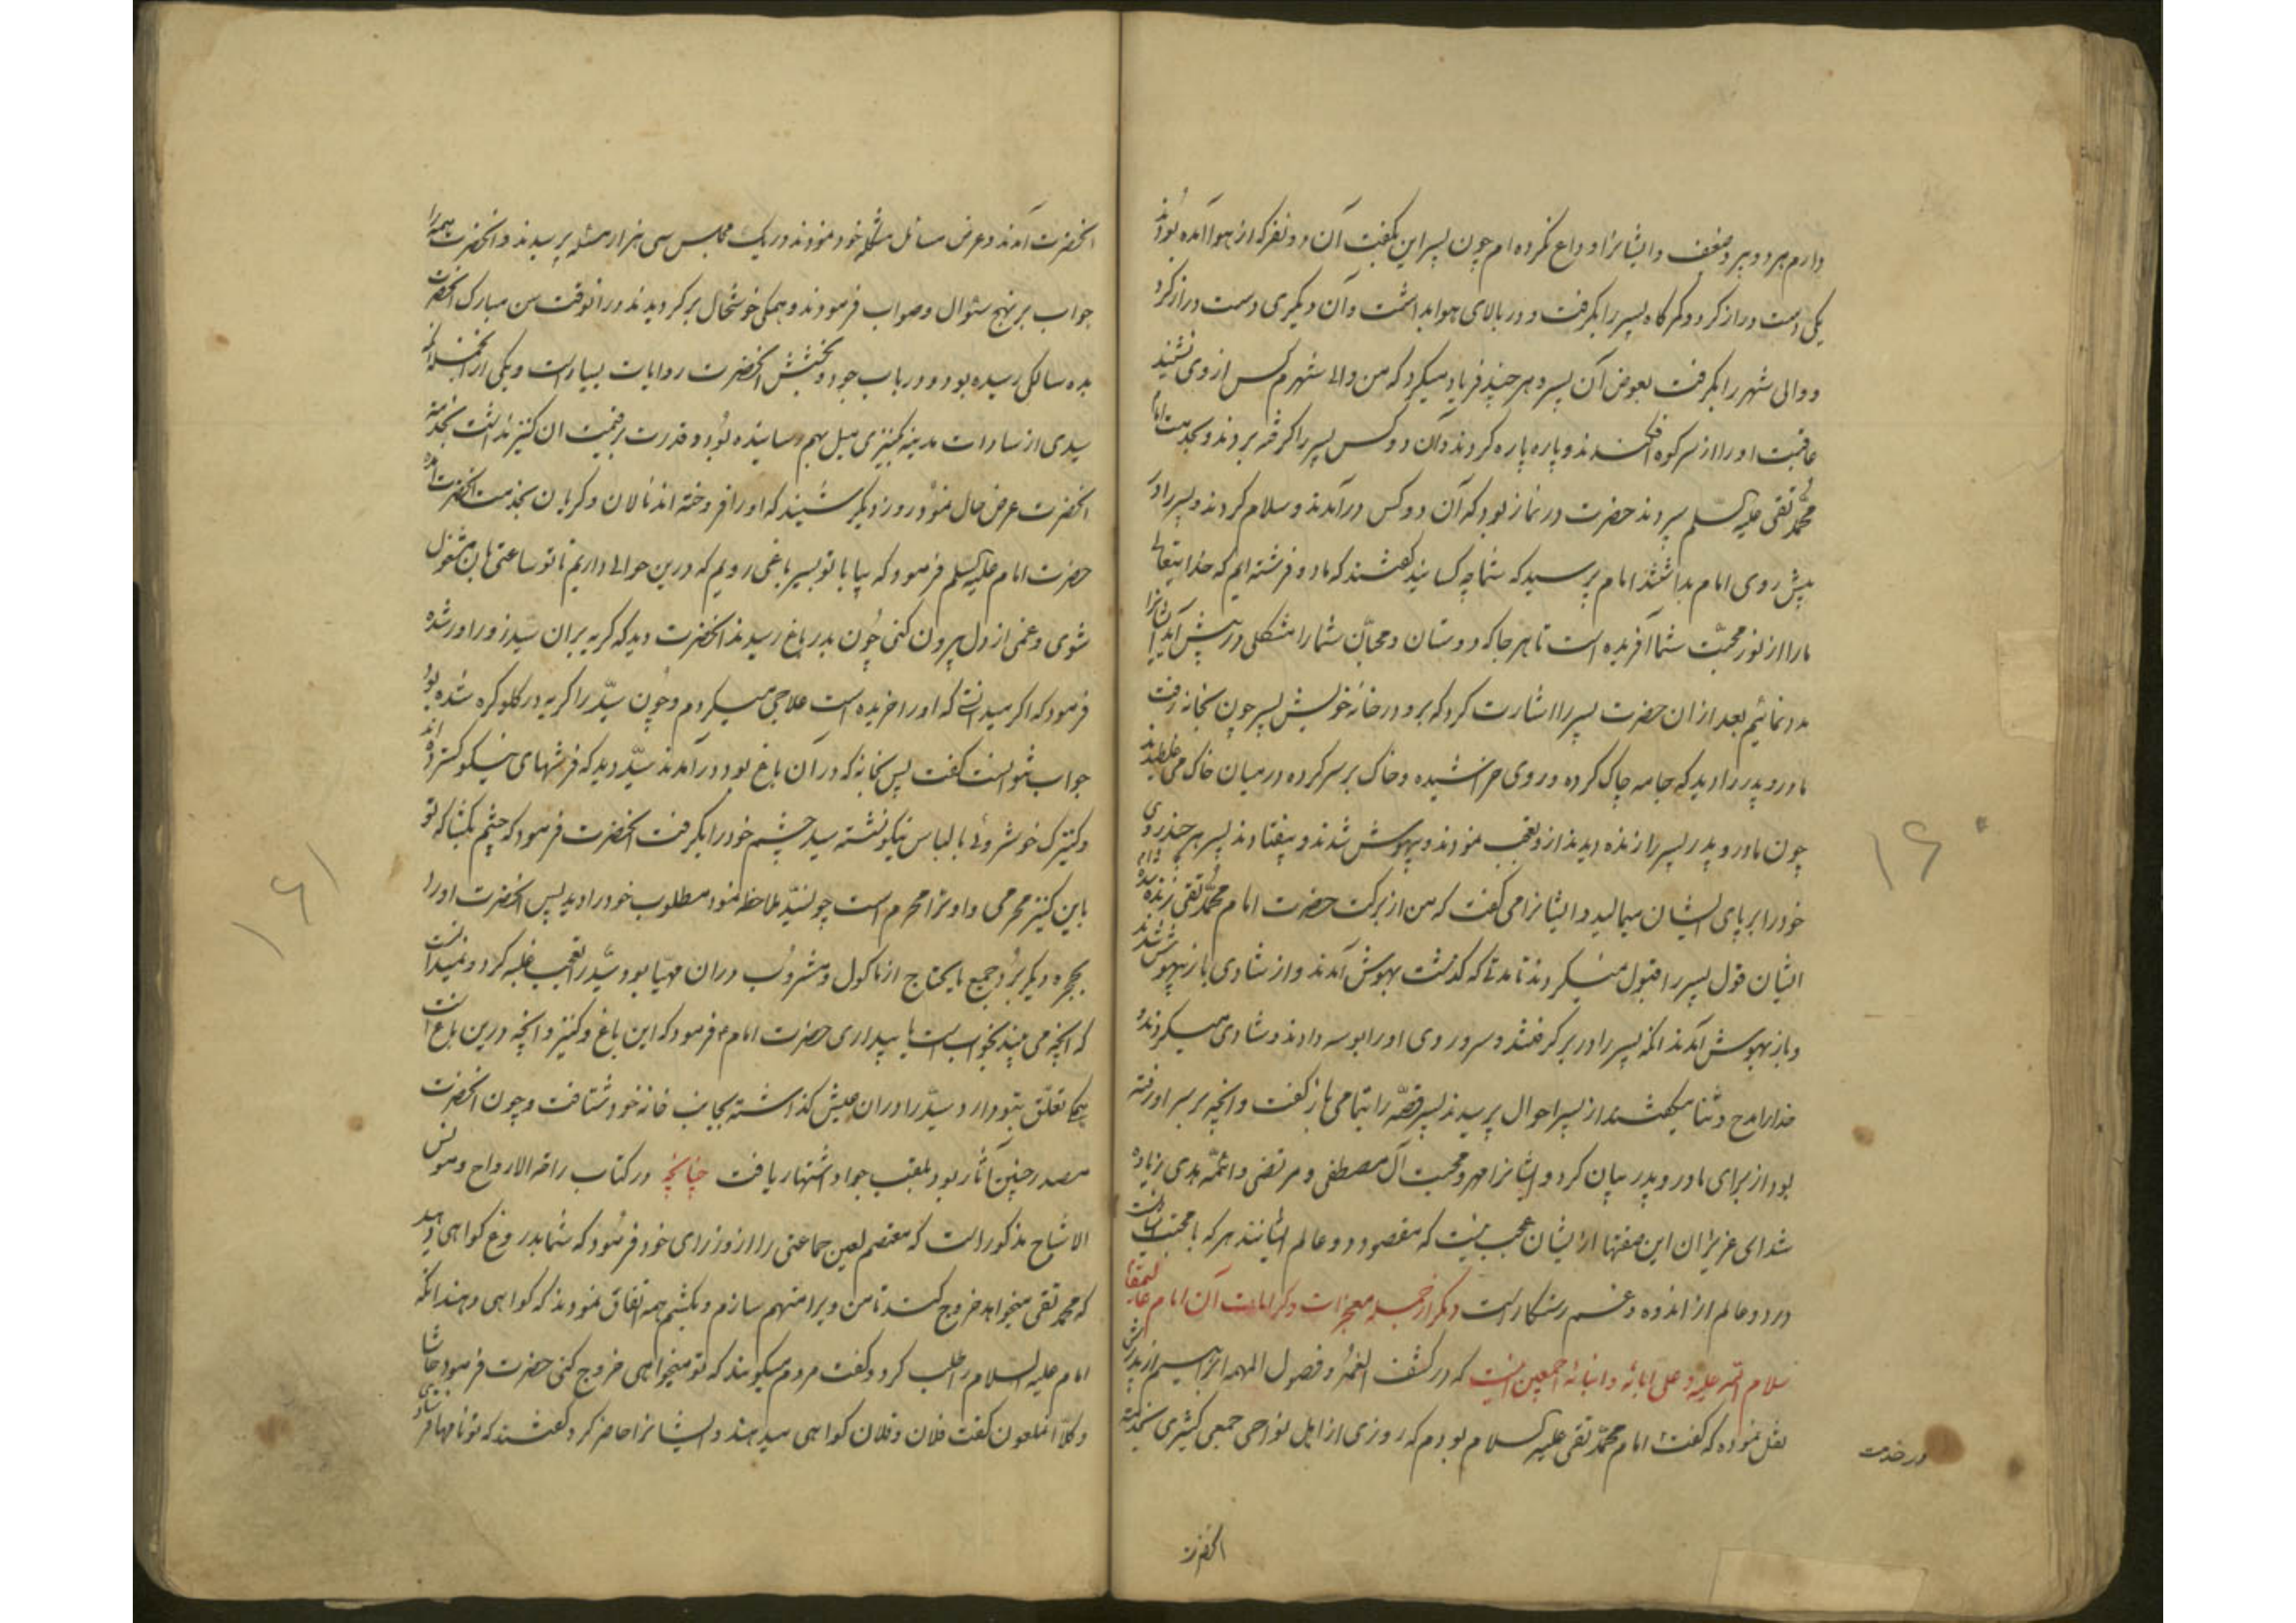 دارم هر دو پیر و ضعیف و ایشانرا وداع نکرده ام چون پسر این بگفت آن دو نفر که از هوا آمده بودند
یکی دست دراز کرد و کمرگاه پسر را بگرفت و در بالای هوا بداشت و آن دیگری دست دراز کرد
و والی شهر را بگرفت بعوض آن پسر و هر چند فریاد میکرد که من والی شهرم کس از وی نشنید
عاقبت او را از سر کوه افکندند و پاره پاره کردند و آن دو کس پسر را گرفته بردند و بخدمت امام
محمد تقی علیه السلم بردند حضرت در نماز بود که آن دو کس درآمدند و سلام کردند و پسر را در
پیش روی امام بداشتند امام پرسید که شما چه کسانید گفتند که ما دو فرشته ایم که خدایتعالی
ما را از نور محبت شما آفریده است تا هر جا که دوستان و محبان شما را مشکلی در پیش آید
مدد نمائیم بعد از ان حضرت پسر را اشارت کرد که برو در خانه خویش پسر چون بخانه رفت
مادر و پدر را دید که جامه چاک کرده و روی خراشیده و خاک بر سر کرده در میان خاک می غلطیدند
چون مادر و پدر پسر را زنده دیدند از و تعجب نمودند و بیهوش شدند و بیفتادند پسر هر چند روی
خود را بر پای ایشان میمالید و ایشانرا می گفت که من از برکت حضرت امام محمد تقی زنده شده ام
ایشان قول پسر را قبول نمیکردند تا مدتی که گذشت بهوش آمدند و از شادی باز بیهوش شدند
و باز بهوش آمدند انکه پسر را در بر گرفتند و سر و روی او را بوسه دادند و شادی میکردند و
خدا را مدح و ثنا میگفتند از پسر احوال پرسیدند پسر قصه را بتمامی باز گفت و انچه بر سر او رفته
بود از برای مادر و پدر بیان کرد و ایشانرا مهر و محبت آل مصطفی و مرتضی و ائمه هدی زیاده
شد ای عزیزان این صفتها از ایشان عجب نیست که مقصود دو عالم ایشانند هر که با محبت ایشانست
در دو عالم از اندوه و غم رستگارست دیگر از جمله معجزات و کرامات آن امام عالیمقام
سلام الله علیه و علی ابائه و ابنائه اجمعین اینست که در کشف الغمه و فصول المهمه ابراهیم از پدرش
نقل نموده که گفت امام محمد تقی علیه السلام بودم که روزی از اهل نواحی جمعی کثیری بخدمت
در خدمت
انحضرت
۱۶۰
انحضرت آمدند و عرض مسائل مشکله خود نمودند در یک مجلس سی هزار مسئله پرسیدند و انحضرت همه را
جواب بر نهج سئوال و صواب فرمودند و همگی خوشحال برگردیدند در انوقت سن مبارک انحضرت
بده سالگی رسیده بود و در باب جود و بخشش انحضرت روایات بسیار است و یکی از انجمله انکه
سیدی از سادات مدینه بکنیزی میل بهم رسانیده بود و قدرت بر قیمت ان کنیز نداشت بخدمت
انحضرت عرض حال نمود روز دیگر شنید که او را فروخته اند نالان و گریان بخدمت انحضرت آمده
حضرت امام علیه السلم فرمود که بیا با تو بسیر باغی رویم که درین حوالی داریم تا تو ساعتی بان مشغول
شوی و غمی از دل بیرون کنی چون بدر باغ رسیدند انحضرت دید که گریه بران سید زور اور شده
فرمود که اگر میدانستی که او را خریده است علاجی میکردم و چون سید را گریه در گلو گره شده بود
جواب نتوانست گفت پس بخانه که در آن باغ بود در آمدند سید دید که فرشهای نیکو گسترده اند
و کنیزک خوشروئی با لباس نیکو نشسته سید چشم خود را بگرفت انحضرت فرمود که چشم بگشا که تو
باین کنیز محرمی و او ترا محرم است چون سید ملاحظه نمود مطلوب خود را دید پس انحضرت او را
بحجره دیگر برد و جمیع مایحتاج از ماکول و مشروب در ان مهیا بود و سید را تعجب غلبه کرد و نمیدانست
که انچه می بیند بخوابست یا ببیداری حضرت امام ؏ فرمود که این باغ و کنیز و انچه درین باغ است
بیکجا تعلق بتو دارد سید را در ان عیش گذاشته بجانب خانه خود شتافت و چون انحضرت
مصدر چنین آثار بود بلقب جواد اشتهار یافت چنانچه در کتاب راحة الارواح و مونس
الاشباح مذکور است که معتصم لعین جماعتی را از وزرای خود فرمود که شما بدروغ گواهی دهید
که محمد تقی میخواهد خروج کند تا من ویرا متهم سازم و بکشم همه اتفاق نمودند که گواهی دهند انکه
امام علیه السلام را طلب کرد و گفت مردم میگویند که تو میخواهی خروج کنی حضرت فرمود حاشا
و کلا انملعون گفت فلان و فلان گواهی میدهند و ایشانرا حاضر کرد گفتند که تو نامها فرستادی
۱۶۱